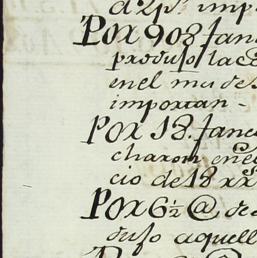 a 2 p.s imp
Por 908 fane
produjo la ce
en el mes de
importan -
Por 18. fane
charon en e
cio de 18 x
Por 6½ @ de
dujo aquell